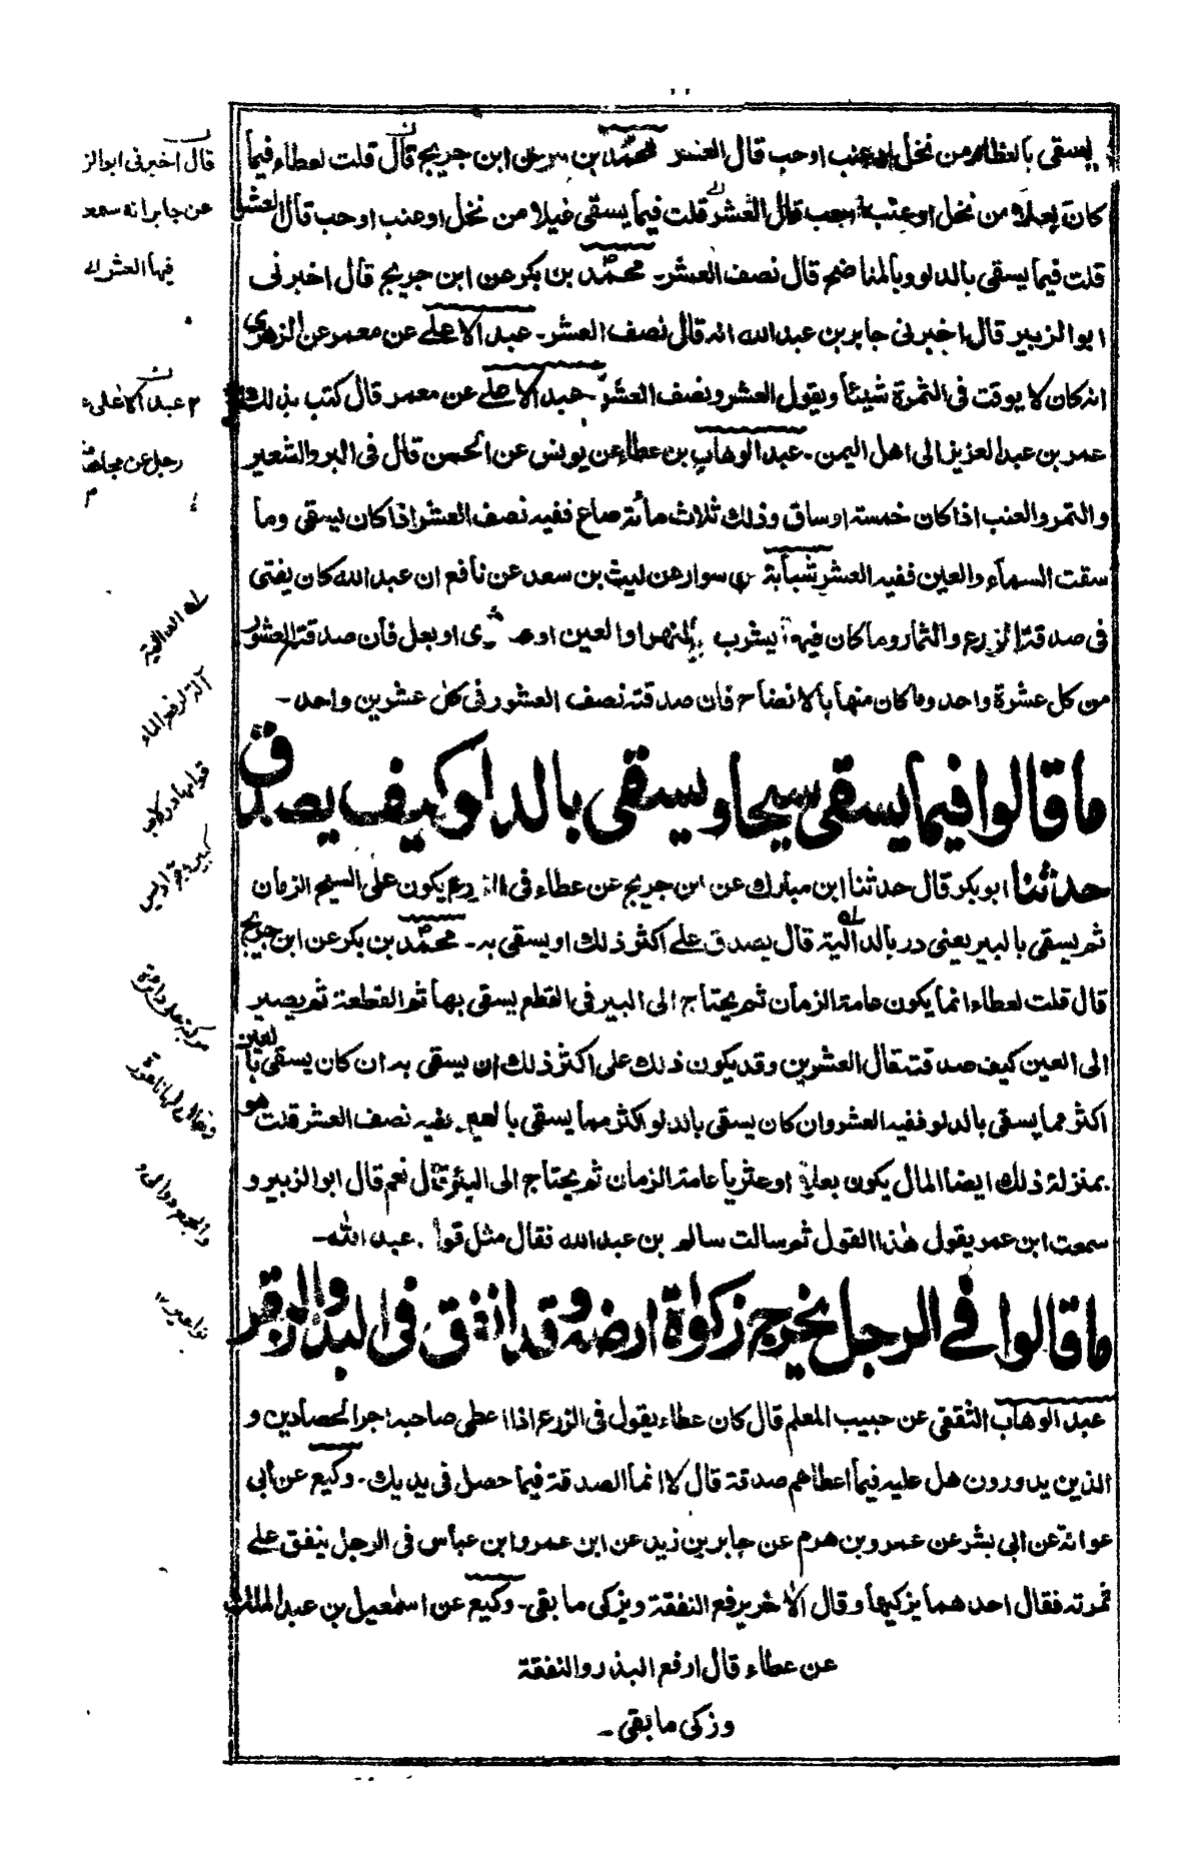 يسقى بالكظائم من نخل او عنب او حب قال العشر محمد بن بكر عن ابن جريج قال قلت لعطاء فيما
كان بعلا من نخل او عنب او حب قال العشر قلت فيما يسقى غيلا من نخل او عنب او حب قال العشر
قلت فيما يسقى بالدلو وبالمناضح قال نصف العشر۔ محمد بن بكر عن ابن جريج قال اخبرنى
ابو الزبير قال اخبرنى جابر بن عبد الله انه قال نصف العشر۔ عبد الاعلے عن معمر عن الزهرى
انه كان لا يوقت فى الثمرة شيئا ويقول العشر ونصف العشر۔ عبد الاعلے عن معمر قال كتب بذلك
عمر بن عبد العزيز الى اهل اليمن۔ عبد الوهاب بن عطاء عن يونس عن الحسن قال فى البر والشعير
والتمر والعنب اذا كان خمسة اوساق وذلك ثلاث مائة صاع ففيه نصف العشر اذا كان يسقى وما
سقت السماء والعين ففيه العشر شبابة بن سوار عن ليث بن سعد عن نافع ان عبد الله كان يفتى
فى صدقة الزرع والثمار وما كان فيها يشرب بالنهر او العين او عثرى او بعل فان صدقته العشور
من كل عشرة واحد وما كان منها بالانضاح فان صدقته نصف العشور فى كل عشرين واحد۔
ما قالوا فيما يسقى سيحا ويسقى بالدلو كيف يصدق
حدثنا ابو بكر قال حدثنا ابن مبارك عن ابن جريج عن عطاء فى الزرع يكون على السيح الزمان
ثم يسقى بالبير يعنى در بالدالية قال يصدق علے اكثر ذلك او يسقى به۔ محمد بن بكر عن ابن جريج
قال قلت لعطاء انما يكون عامة الزمان ثم يحتاج الى البير فى القطع يسقى بها ثم القطعة ثم يصير
الى العين كيف صدقته فقال العشرين وقد يكون ذلك على اكثر ذلك ان يسقى به ان كان يسقى بالعين
اكثر مما يسقى بالدلو ففيه العشر وان كان يسقى بالدلو اكثر مما يسقى بالعين ففيه نصف العشر قلت هو
بمنزلة ذلك ايضا المال يكون بعلا او عثريا عامة الزمان ثم يحتاج الى البئر قال نعم قال ابو الزبير و
سمعت ابن عمر يقول هذا القول ثم سالت سالم بن عبد الله فقال مثل قول عبد الله۔
ما قالوا فے الرجل يخرج زكوٰة ارضه وقد انفق فى البذر والبقر
عبد الوهاب الثقفى عن حبيب المعلم قال كان عطاء يقول فى الزرع اذا اعطى صاحبه اجر الحصادين و
الذين يدورون هل عليه فيما اعطاهم صدقة قال لا انما الصدقة فيما حصل فى يديك۔ وكيع عن ابى
عوانة عن ابى بشر عن عمرو بن هرم عن جابر بن زيد عن ابن عمر وابن عباس فى الرجل ينفق علے
ثمرته فقال احدهما يزكيها وقال الاٰخر يرفع النفقة ويزكى ما بقى۔ وكيع عن اسمٰعيل بن عبد الملك
عن عطاء قال ارفع البذر والنفقة
وزكى ما بقى۔
قال اخبرنى ابو الز
عن جابر انه سمعه
فيها العشر
٢ عبد الاعلى
رجل عن مجاهد